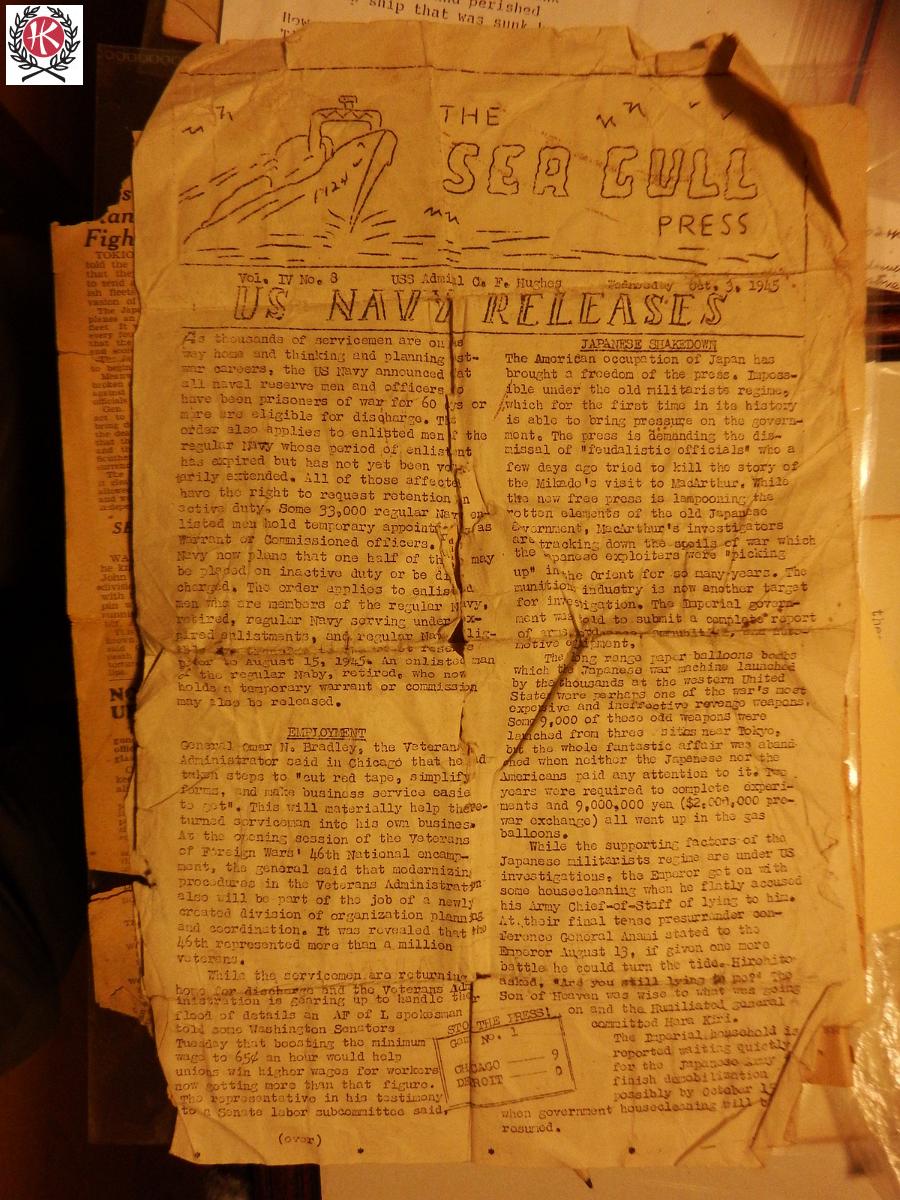 HK
and perished
ship that was sunk
How
Fight
TOKIO
1924
THE
SEA GULL
PRESS
Vol. IV No. 8 USS Admiral C. F. Hughes Wednesday Oct. 3, 1945
US NAVY RELEASES
As thousands of servicemen are on
way home and thinking and planning
war careers, the US Navy announced
all naval reserve men and officers
have been prisoners of war for 60 or
more are eligible for discharge.
order also applies to enlisted men the
regular Navy whose period of enlist
has expired but has not yet been
tarily extended. All of those
have the right to request retention
active duty. Some 33,000 regular Navy en-
listed men hold temporary as
Warrant or Commissioned officers.
Navy now plans that one half of may
be placed on inactive duty or be
charged. The order applies to
men who are members of the regular Navy,
retired, regular Navy serving under ex-
pired enlistments, and regular
prior to August 15, 1945. An enlisted man
of the regular Naby, retired, who now
holds a temporary warrant or commission
may also be released.
EMPLOYMENT
General Omar N. Bradley, the Veterans
Administrator said in Chicago that he
taken steps to "cut red tape, simplify
forms, and make business service easie
to get". This will materially help the re-
turned serviceman into his own busines
At the opening session of the Veterans
of Foreign Wars' 46th National encamp-
ment, the general said that modernizin
procedures in the Veterans Administration
also will be part of the job of a newly
created division of organization planning
and coordination. It was revealed that the
46th represented more than a million
veterans.
While the servicemen are returning
home for discharge and the Veterans Adm
inistration is gearing up to handle
flood of details an AF of L spokesman
told some Washington Senators
Tuesday that boosting the minimum
wage to 65¢ an hour would help
unions win higher wages for workers
now getting more than that figure.
The representative in his testimony
to a Senate labor subcommittee said,
(over)
STOP THE PRESS!
Game No. 1
CHICAGO 9
DETROIT 0
JAPANESE SHAKEDOWN
The American occupation of Japan has
brought a freedom of the press. Imposs-
ible under the old militarists regime,
which for the first time in its history
is able to bring pressure on the govern-
ment. The press is demanding the dis-
missal of "feudalistic officials" who a
few days ago tried to kill the story of
the Mikado's visit to MacArthur. While
the new free press is lampooning the
rotten elements of the old Japanese
Government, MacArthur's investigators
are tracking down the spoils of war which
the Japanese exploiters were "picking
up" in the Orient for so many years. The
munitions industry is now another target
for investigation. The Imperial govern-
ment was told to submit a complete report
of arms, ordnance, and auto-
motive equipment.
The long range paper balloons bombs
which the Japanese war machine launched
by the thousands at the western United
States were perhaps one of the war's most
expensive and ineffective revenge weapons.
Some 9,000 of these odd weapons were
launched from three sites near Tokyo,
but the whole fantastic affair was aband
oned when neither the Japanese nor the
Americans paid any attention to it. Two
years were required to complete experi-
ments and 9,000,000 yen ($2,000,000 pre-
war exchange) all went up in the gas
balloons.
While the supporting factors of the
Japanese militarists regime are under US
investigations, the Emperor got on with
some housecleaning when he flatly accused
his Army Chief-of-Staff of lying to him.
At their final tense presurrander con-
ference General Anami stated to the
Emperor August 13, if given one more
battle he could turn the tide. Hirohito
asked, "Are you still lying to me?" The
Son of Heaven was wise to what was going
on and the Humiliated general
committed Hara Kiri.
The Imperial household is
reported waiting quietly
for the Japanese Army
finish demobilization
possibly by October 15
when government housecleaning will b
resumed.